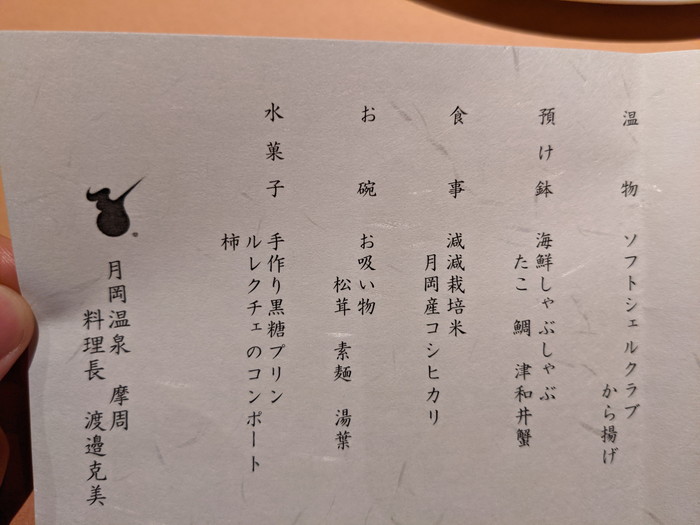 温物
ソフトシェルクラブ
から揚げ
預け鉢
海鮮しゃぶしゃぶ
たこ 鯛 津和井蟹
食事
減減栽培米
月岡産コシヒカリ
お碗
お吸い物
松茸 素麺 湯葉
水菓子
手作り黒糖プリン
ルレクチェのコンポート
柿
月岡温泉 摩周
料理長 渡邉克美